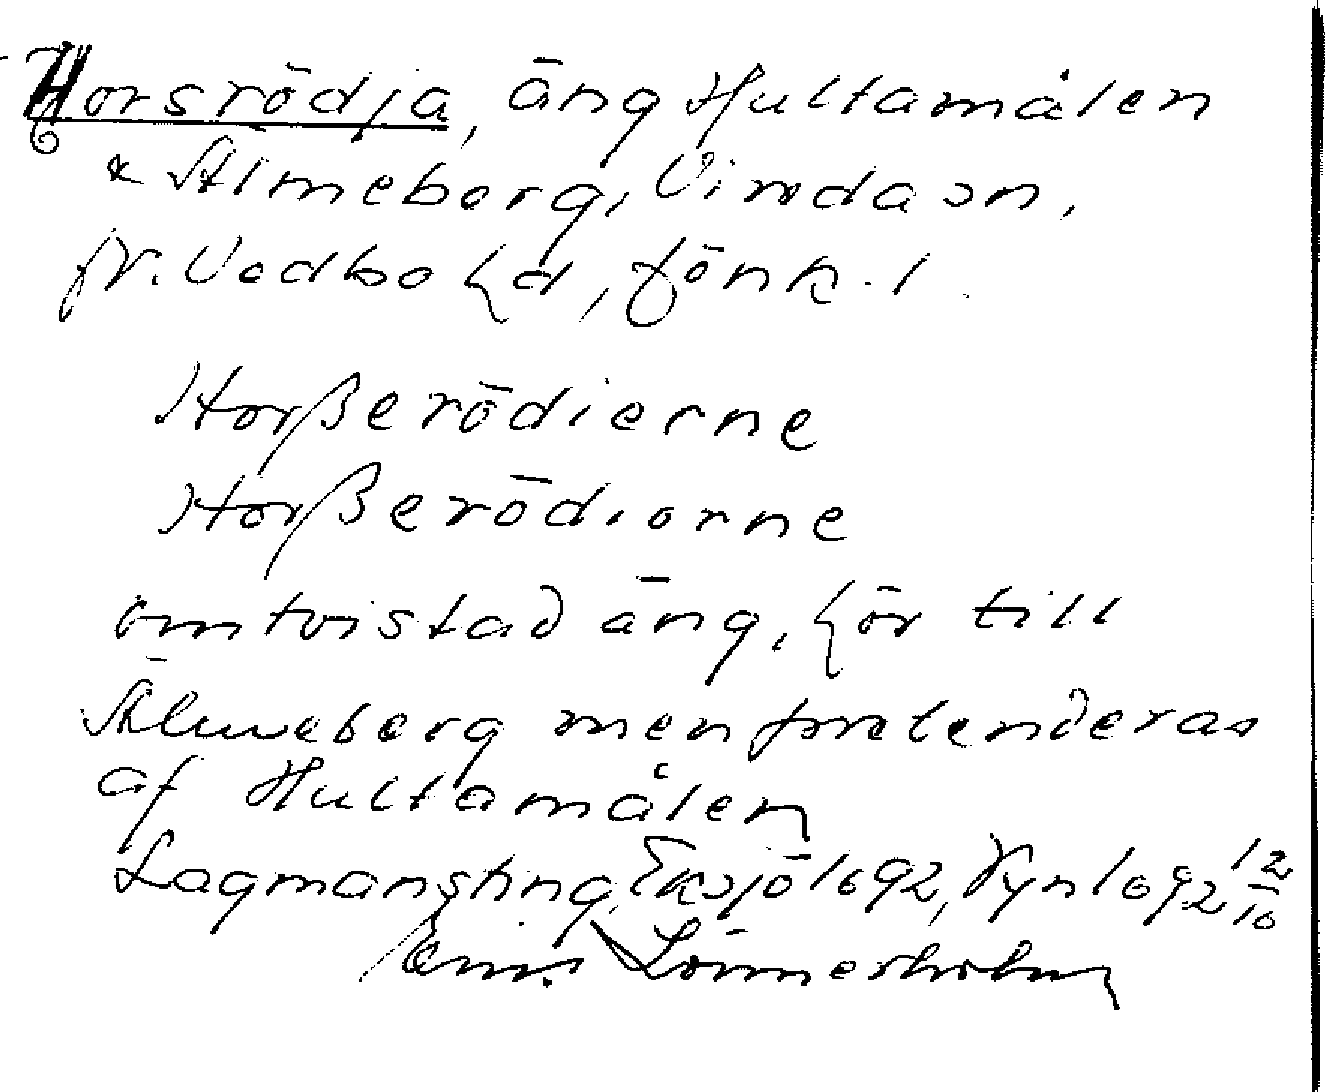 Horsrödja, äng Hultamålen
& Älmeberg, Virda sn,
N. Vedbo hd, Jönk. l.
Horßerödierne
Horßerödiorne
omtvistad äng, hör till
Älmeberg men pretenderas
af Hultamålen
Lagmansting, Eksjö 1692, Syn 1692 12/10
Linnerholm